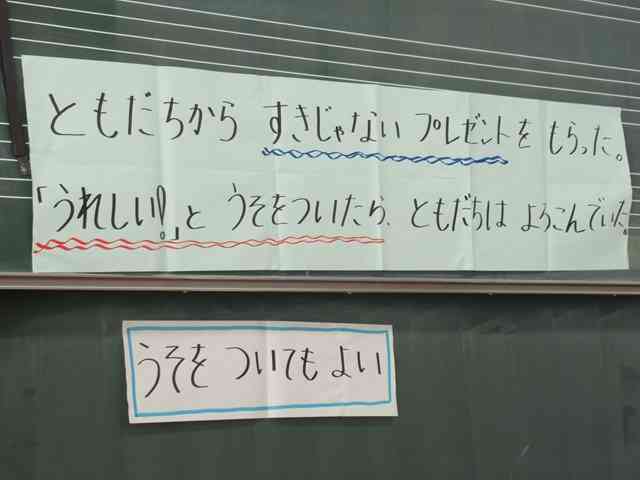 ともだちから すきじゃない プレゼントを もらった。
「うれしい!」と うそをついたら、ともだちは よろこんでいた。
うそを ついても よい